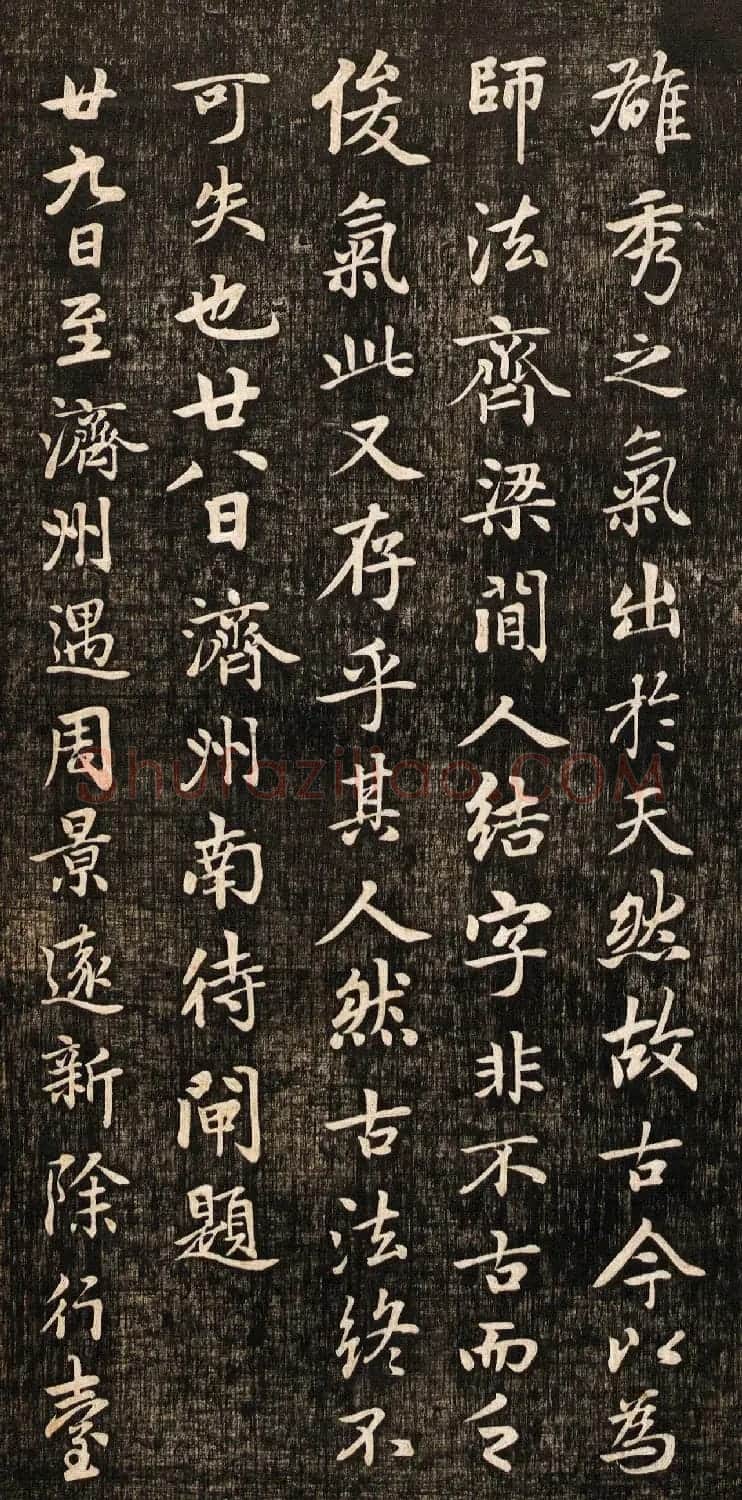 雄秀之氣出於天然故古今以為
師法齊梁間人結字非不古而乏
俊氣此又存乎其人然古法終不
可失也廿八日濟州南待閘題
廿九日至濟州遇周景遠新除行臺
Shufaziliao.COM